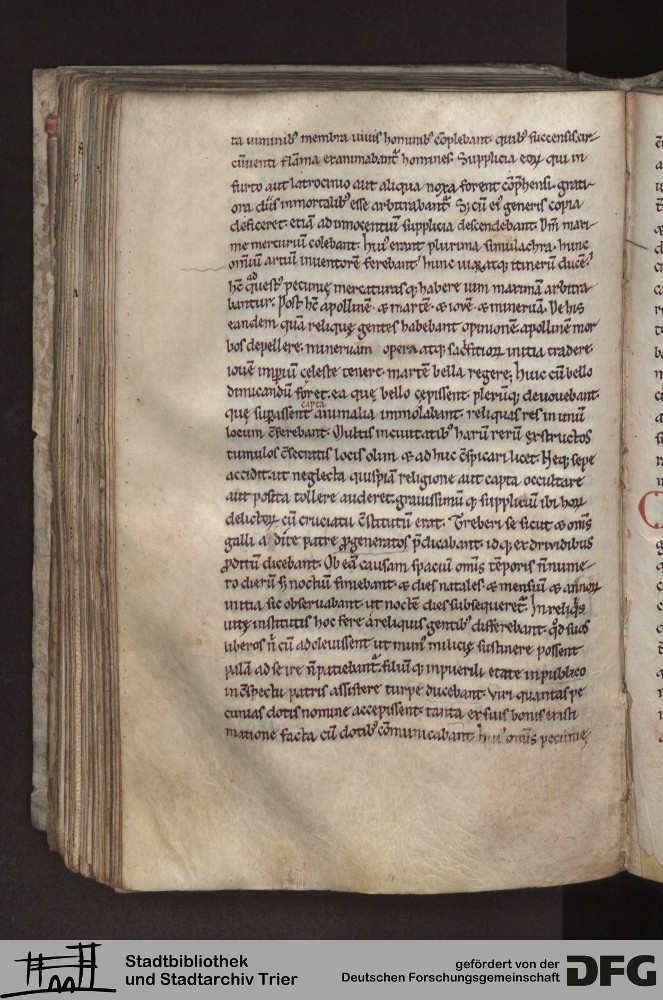 ta uiminib᷒ membra uiuis hominib᷒ cōplebant. quib᷒ succensis cir-
cūuenti flāma exanimabant᷑ homines. Supplicia eoꝝ qui in
furto aut latrocinio aut aliqua noxa forent cōp̄hensi. grati-
ora diis inmortalib᷒ esse arbitrabant᷑. S; cū ei᷒ generis copia
deficeret. etiā ad innocentiū supplicia descendebant. Dm̄ maxi-
me mercuriū colebant. hui᷒ erant plurima simulachra. hunc
omiū artiū inuentorē ferebant. hunc uiaꝝ atq; itinerū ducē.
hc̄ ad questꝰ pecunię mercaturasq; habere uim maximā arbitra-
bantur. Post hc̄ apollinē. & martē. & iouē. & mineruā. De his
eandem quā reliquę gentes habebant opinionē. apollinē mor
bos depellere. mineruam opera atq; artificioꝝ initia tradere.
iouē imperiū celeste tenere. martē bella regere; huic cū bello
dimicandū foret. ea quę bello cępissent plerūq; deuouebant.
quę supassent capta animalia immolabant. reliquas res in unū
locum cſerebant. Multis in ciuitatib᷒ harū rerū exstructos
tumulos cſecratis locis olim & ad huc cſpicari licet. Neq; sepe
accidit. ut neglecta quispiā religione aut capta occultare
aut posita tollere auderet. grauissimū q; suppliciū ibi hoꝝ
delictoꝝ cū cruciatu cſtitutū erat. Treberi se sicut & om̄s
galli a dite patre ꝓgeneratos p̄dicabant. idq; ex driuidibus
ꝓditū dicebant. Ob eā causam spaciū om̄s tēporis n̄ nume-
ro dierū s; noctiū finiebant. & dies natales. & mensiū & annoꝝ
initia sic obseruabant. ut noctē dies subsequeret᷑. In reliq̄s
uitę institutis hoc fere a reliquis gentib᷒ differebant. qđ suos
liberos n̄ cū adoleuissent ut mun᷒ milicię sustinere possent
palā ad se ire n̄ patiebant᷑. filiū q; in puerili etate in publico
in cſpectu patris assistere turpe ducebant. Viri quantas pe
cunias dotis nomine accepissent. tanta ex suis bonis existi
matione facta cū dotib᷒ cōmunicabant. hui᷒ om̄s pecunię
Stadtbibliothek
und Stadtarchiv Trier
gefördert von der
Deutschen Forschungsgemeinschaft
DFG